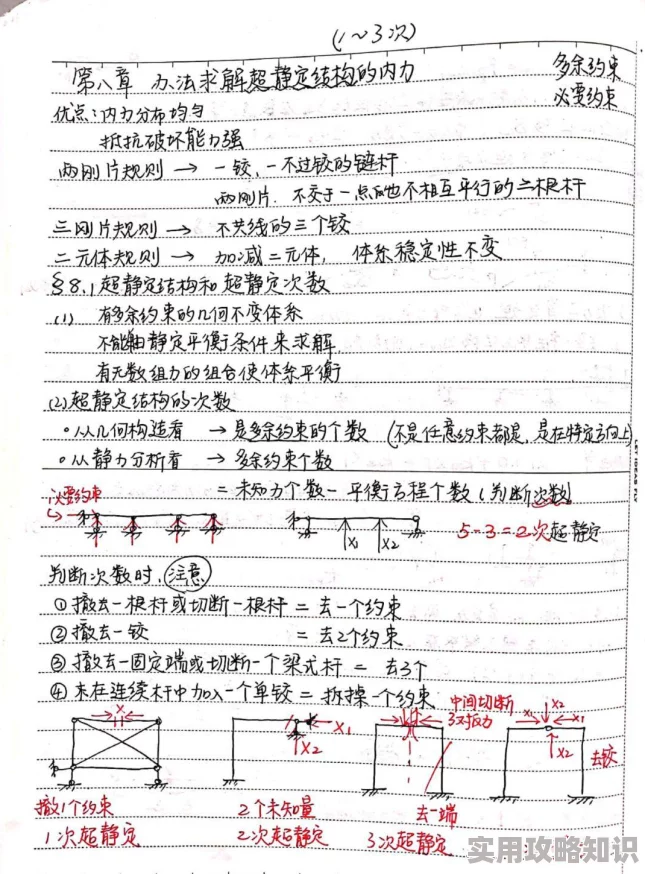 (1～3次)
多余约束
第八章 力法求解超静定结构的内力
必要约束
优点：内力分布均匀
抵抗破坏能力强
两刚片规则 → 一铰、一不过铰的链杆
两刚片、不交于一点而也不相互平行的三根杆
三刚片规则 → 不共线的三个铰
二元体规则 → 加减二元体，体系稳定性不变
§8.1 超静定结构和超静定次数
(1) 有多余约束的几何不变体系
不能由静定平衡条件来求解
有无数组力的组合使体系平衡
(2) 超静定结构的次数
·从几何构造看 → 是多余约束的个数 (不是任意约束都是，是在特定方向上)
·从静力分析看 → 多余约束个数
= 未知力个数－平衡方程个数 (判断次数)
必要约束
X1 X2
5-3=2次超静定
判断次数时，注意
① 撤去一根杆或切断一根杆 = 去一个约束
② 撤去一铰 = 去2个约束
③ 撤去一固定端或切断一个梁式杆 = 去3个
④ 末在连续杆中加入一个单铰 = 拆掉一个约束
X
X1
X2
中间切断
3对反力
X2
X1 X1
X2
去铰
撤1个约束
2个未知量
去一端
1次超静定
2次超静定
3次超静定
LET IDEAS FLY
实用攻略知识